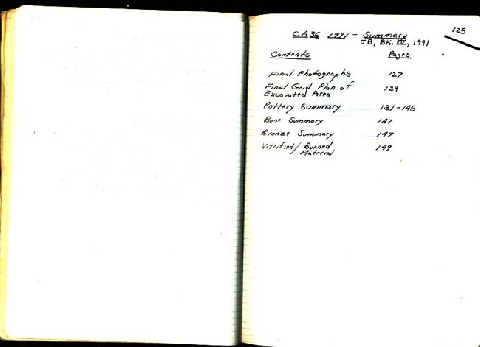 125
CA36 1991 - Summary
JA, BK. IV, 1991
Contents Pages
Final Photographs 127
Final Grid Plan of
Excavated Area 129
Pottery Summary 131-145
Bone Summary 147
Bronze Summary 147
Vitrified / Burned
Material 149